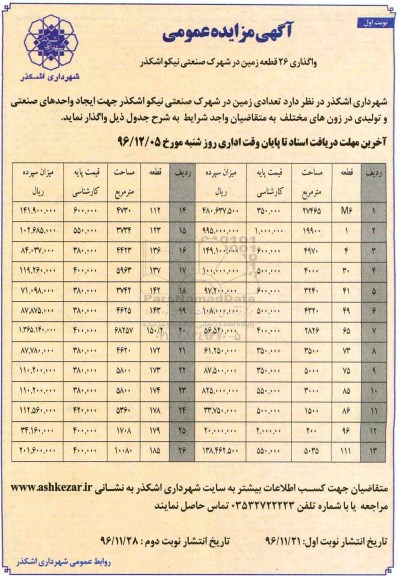 نوبت اول
آگهی مزایده عمومی
شهرداری اشکذر
واگذاری ۲۶ قطعه زمین در شهرک صنعتی نیکو اشکذر
شهرداری اشکذر در نظر دارد تعدادی زمین در شهرک صنعتی نیکو اشکذر جهت ایجاد واحدهای صنعتی
و تولیدی در زون های مختلف به متقاضیان واجد شرایط به شرح جدول ذیل واگذار نماید.
آخرین مهلت دریافت اسناد تا پایان وقت اداری روز شنبه مورخ ۹۶/۱۲/۰۵
ردیف قطعه مساحت مترمربع قیمت پایه کارشناسی میزان سپرده ریال ردیف قطعه مساحت مترمربع قیمت پایه کارشناسی میزان سپرده ریال
۱ M6 ۲۷۴۶۵ ۳۵۰،۰۰۰ ۴۸۰،۶۳۷،۵۰۰ ۱۴ ۱۱۲ ۴۷۳۰ ۶۰۰،۰۰۰ ۱۴۱،۹۰۰،۰۰۰
۲ ۱ ۱۹۹۰۰ ۱،۰۰۰،۰۰۰ ۹۹۵،۰۰۰،۰۰۰ ۱۵ ۱۲۳ ۳۷۳۴ ۵۵۰،۰۰۰ ۱۰۲،۶۸۵،۰۰۰
۳ ۴ ۴۹۷۰ ۶۰۰،۰۰۰ ۱۴۹،۱۰۰،۰۰۰ ۱۶ ۱۳۶ ۴۴۲۳ ۳۸۰،۰۰۰ ۸۴،۰۳۷،۰۰۰
۴ ۳۰ ۴۰۰۰ ۵۰۰،۰۰۰ ۱۰۰،۰۰۰،۰۰۰ ۱۷ ۱۳۷ ۵۹۶۳ ۴۰۰،۰۰۰ ۱۱۹،۲۶۰،۰۰۰
۵ ۴۱ ۳۲۴۰ ۶۰۰،۰۰۰ ۹۷،۲۰۰،۰۰۰ ۱۸ ۱۴۲ ۳۷۴۲ ۳۸۰،۰۰۰ ۷۱،۰۹۸,۰۰۰
۶ ۴۹ ۴۳۲۰ ۵۰۰،۰۰۰ ۱۰۸،۰۰۰،۰۰۰ ۱۹ ۱۴۳ ۴۶۲۵ ۳۸۰،۰۰۰ ۸۷،۸۷۵،۰۰۰
۷ ۶۵ ۲۸۲۶ ۴۰۰،۰۰۰ ۵۶،۵۲۰،۰۰۰ ۲۰ ۱۵۰/۲ ۶۸۲۵۷ ۴۰۰،۰۰۰ ۱،۳۶۵،۱۴۰،۰۰۰
۸ ۷۳ ۳۵۰۰ ۳۵۰،۰۰۰ ۶۱،۲۵۰،۰۰۰ ۲۱ ۱۷۲ ۴۶۲۰ ۳۸۰،۰۰۰ ۸۷،۷۸۰،۰۰۰
۹ ۷۵ ۵۰۰۰ ۳۵۰،۰۰۰ ۸۷،۵۰۰،۰۰۰ ۲۲ ۱۷۳ ۵۸۰۰ ۳۸۰،۰۰۰ ۱۱۰،۲۰۰،۰۰۰
۱۰ ۸۵ ۳۰۰۰ ۵۵۰،۰۰۰ ۸۲۵،۰۰۰،۰۰۰ ۲۳ ۱۷۴ ۵۸۰۰ ۳۸۰،۰۰۰ ۱۱۰،۲۰۰،۰۰۰
۱۱ ۸۶ ۱۵۰۰ ۵۰۰،۰۰۰ ۳۳،۷۵۰،۰۰۰ ۲۴ ۱۷۸ ۵۳۶۰ ۴۲۰،۰۰۰ ۱۱۲،۵۶۰،۰۰۰
۱۲ ۹۶ ۲۰۰ ۲،۰۰۰،۰۰۰ ۲۰،۰۰۰،۰۰۰ ۲۵ ۱۷۹ ۱۷۰۸ ۴۰۰،۰۰۰ ۳۴،۱۶۰،۰۰۰
۱۳ ۱۱۱ ۵۰۳۵ ۵۵۰،۰۰۰ ۱۳۸،۴۶۲،۵۰۰ ۲۶ ۱۸۵ ۱۰۰۸۰ ۴۰۰،۰۰۰ ۲۰۱،۶۰۰،۰۰۰
متقاضیان جهت کسب اطلاعات بیشتر به سایت شهرداری اشکذر به نشانی www.ashkezar.ir
مراجعه یا با شماره تلفن ۰۳۵۳۲۷۲۲۲۲۳ تماس حاصل نمایند
تاریخ انتشار نوبت اول: ۹۶/۱۱/۲۱ تاریخ انتشار نوبت دوم : ۹۶/۱۱/۲۸
روابط عمومی شهرداری اشکذر